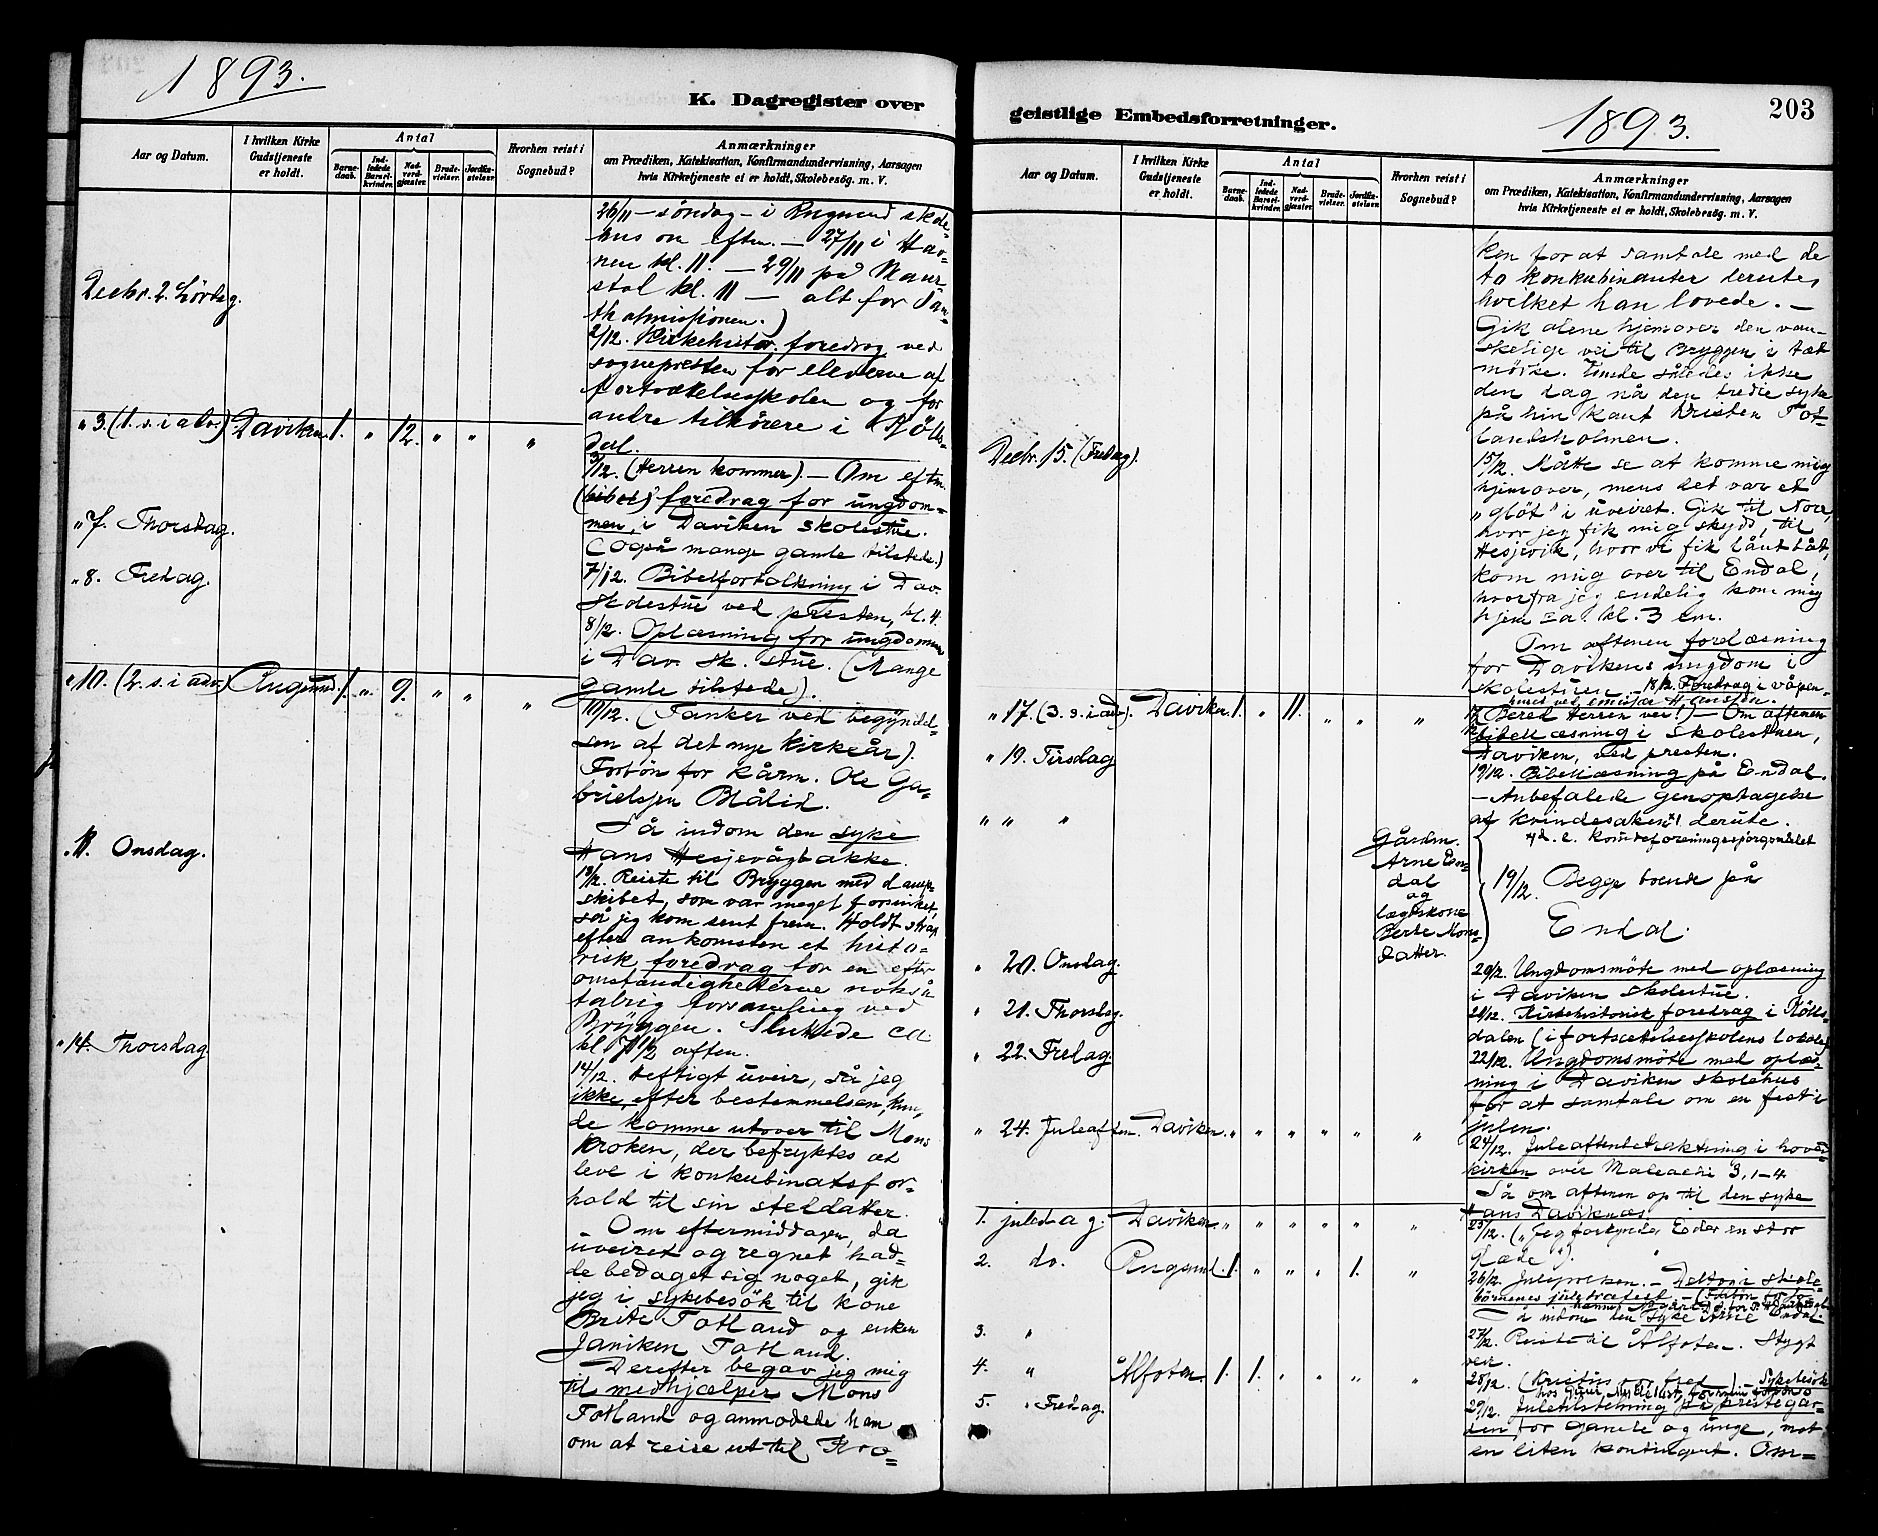 1893.
K. Dagregister over
Aar og Datum.
I hvilken Kirke
Gudstjeneste
er holdt.
Antal
Barne-
daab.
Ind-
ledede
Barsel-
kvinder.
Nad-
verd-
gjæster.
Brude-
vielser.
Jordfæ-
stelser.
Hvorhen reist i
Sognebud?
Anmærkninger
om Prædiken, Katekisation, Konfirmandundervisning, Aarsagen
hvis Kirketjeneste ei er holdt, Skolebesög. m. V.
26/11 – söndag – i Rugsund skole-
hus om eftm. – 27/11 i Hav-
nen kl. 11. – 29/11 på Maur-
stal kl. 11 – alt for San-
talmissionen.)
Decbr. 2. Lördag.
2/12. Kirkehistor. foredrag ved
sognepresten for eleverne af
fortsættelsesskolen og for
andre tilhörere i Kjölls-
dal.
" 3. (1. s. i adv.) Daviken. 1. " 12. " " "
3/12. (Herren kommer). – Om eftm.
(bibel) foredrag for ungdom-
men, i Daviken skolestue.
(Også mange gamle tilstede.)
" 7. Thorsdag.
7/12. Bibelfortolkning i Dav.
skolestue ved presten, kl. 4.
" 8. Fredag.
8/12. Oplæsning for ungdommen
i Dav. sk. stue. (Mange
gamle tilstede).
" 10. (2. s. i adv.) Rugsund. 1. " 9. " " "
10/12. (Tanker ved begyndel-
sen af det nye kirkeår).
Forbön for kårm. Ole Ga-
brielsen Blålid.
Så indom den syke
Hans Hesjevågbakke.
" 13. Onsdag.
13/12. Reiste til Bryggen med damp-
skibet, som var meget forsinket,
så jeg kom sent frem. Holdt strax
efter ankomsten et histo-
risk foredrag for en efter
omstændighetterne nokså
talrig forsamling ved
Bryggen. Sluttede ca
kl. 7 1/2 aften.
" 14. Thorsdag.
14/12. Heftigt uveir, så jeg
ikke, efter bestemmelsen, kun-
de komme utover til Mons
Kroken, der befryktes at
leve i konkubinatsfor-
hold til sin steldatter.
– Om eftermiddagen, da
uveiret og regnet had-
de bedaget sig noget, gik
jeg i sykebesök til kone
Brite Totland og enken
Janiken Totland.
Derefter begav jeg mig
til medhjælper Mons
Totland og anmodede ham
om at reise ut til Kro-
geistlige Embedsforretninger.
1893.
203
Aar og Datum.
I hvilken Kirke
Gudstjeneste
er holdt.
Antal
Barne-
daab.
Ind-
ledede
Barsel-
kvinder.
Nad-
verd-
gjæster.
Brude-
vielser.
Jordfæ-
stelser.
Hvorhen reist i
Sognebud?
Anmærkninger
om Prædiken, Katekisation, Konfirmandundervisning, Aarsagen
hvis Kirketjeneste ei er holdt, Skolebesög. m. V.
ken for at samtale med de
to konkubinanter derute,
hvilket han lovede. –
Gik alene hjemover den van-
skelige vei til Bryggen i tæt
mörke. Kunde således ikke
den dag nå den tredie syke
på hin kant Kristen Tot-
landsholmen.
Decbr. 15. (Fredag).
15/12. Måtte se at komme mig
hjemover, mens det var et
"glöt" i uveiret. Gik til Nore,
hvor jeg fik mig skyds, til
Hesjevik, hvor vi fik lånt båt,
kom mig over til Endal,
hvorfra jeg endelig kom mig
hjem ca. kl. 3 em.
Om aftenen forelæsning
for Davikens ungdom i
skolestuen. – 18/12. Foredrag i våpen-
huset ved emissær
" 17. (3. s. i adv). Daviken. 1. " 11. " " "
17/12. Bered Herren vei!) – Om aftenen
bibellæsning i skolestuen,
Daviken, ved presten.
" 19. Tirsdag
19/12. Bibellæsning på Endal.
– Anbefalede genoptagelse
af kvindesaken x) derute.
x) d. e. kvindeforeningsspörgsmålet
" " "
Gårdm.
Arne En-
dal
og
lægdskone
Berte Mons-
datter.
19/12. Begge boende på
Endal.
" 20. Onsdag.
20/12. Ungdomsmöte med oplæsning
i Daviken skolestue.
" 21. Thorsdag.
21/12. Kirkehistorisk foredrag i Kölls-
dalen (i fortsættelsesskolens lokale)
" 22. Fredag.
22/12. Ungdomsmöte med oplæs-
ning i Daviken skolehus
for at samtale om en fest i
julen.
" 24. Juleaften. Daviken. " " " " " "
24/12. Juleaftenbetraktning i hoved-
kirken over Maleachi 3, 1–4.
Så om aftenen op til den syke
Hans Daviknæs.
1. juledag. Daviken. " " " " " "
25/12. ("Jeg forkynder Eder en stor
glæde").
2. do. Rugsund. 1. " " " 1. "
26/12. Julepræken. – Deltog i skole-
börnenes juletræfest. – (Forbön for
Så indom den syke Arne Endal.
3. "
27/12. Reiste til Ålfoten. Stygt
veir.
4. " Ålfoten. 1. 1. " " " "
28/12. (Kristus vor fred). – Sykebesök
5. " Fredag.
29/12. Juletilstelning på prestegår-
den for gamle og unge, mot
en liten kontingent. Om-